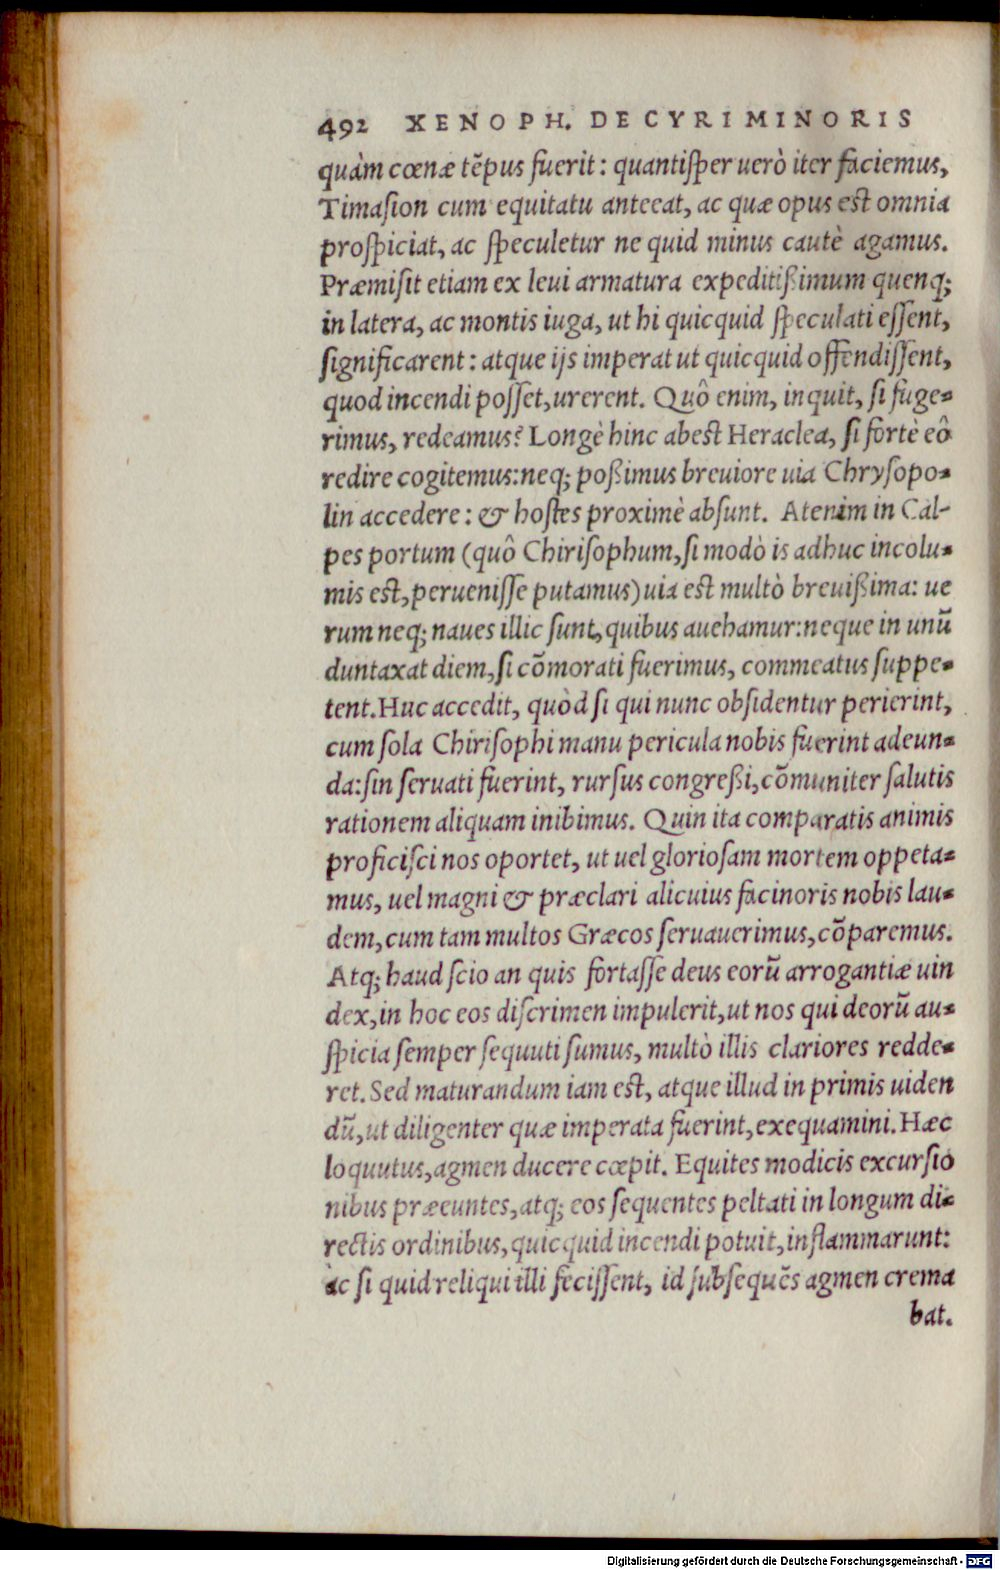 492 XENOPH. DE CYRI MINORIS
quàm cœnæ tẽpus fuerit: quantiſper uerò iter faciemus,
Timaſion cum equitatu anteeat, ac quæ opus eſt omnia
proſpiciat, ac ſpeculetur ne quid minus cautè agamus.
Præmiſit etiam ex leui armatura expeditißimum quenq;
in latera, ac montis iuga, ut hi quicquid ſpeculati eſſent,
ſignificarent: atque ijs imperat ut quicquid offendiſſent,
quod incendi poſſet, urerent. Quô enim, inquit, ſi fuge-
rimus, redeamus? Longè hinc abeſt Heraclea, ſi fortè eô
redire cogitemus: neq; poßimus breuiore uia Chryſopo-
lin accedere: & hoſtes proximè abſunt. Atenim in Cal-
pes portum (quô Chiriſophum, ſi modò is adhuc incolu-
mis eſt, perueniſſe putamus) uia eſt multò breuißima: ue
rum neq; naues illic ſunt, quibus auehamur: neque in unũ
duntaxat diem, ſi cõmorati fuerimus, commeatus ſuppe-
tent. Huc accedit, quòd ſi qui nunc obſidentur perierint,
cum ſola Chiriſophi manu pericula nobis fuerint adeun-
da: ſin ſeruati fuerint, rurſus congreßi, cõmuniter ſalutis
rationem aliquam inibimus. Quin ita comparatis animis
proficiſci nos oportet, ut uel glorioſam mortem oppeta-
mus, uel magni & præclari alicuius facinoris nobis lau-
dem, cum tam multos Græcos ſeruauerimus, cõparemus.
Atq; haud ſcio an quis fortaſſe deus eorũ arrogantiæ uin
dex, in hoc eos diſcrimen impulerit, ut nos qui deorũ au-
ſpicia ſemper ſequuti ſumus, multò illis clariores redde-
ret. Sed maturandum iam eſt, atque illud in primis uiden
dũ, ut diligenter quæ imperata fuerint, exequamini. Hæc
loquutus, agmen ducere cœpit. Equites modicis excurſio
nibus præeuntes, atq; eos ſequentes peltati in longum di-
rectis ordinibus, quicquid incendi potuit, inflammarunt:
ac ſi quid reliqui illi feciſſent, id ſubſequẽs agmen crema
bat.
Digitalisierung gefördert durch die Deutsche Forschungsgemeinschaft - DFG